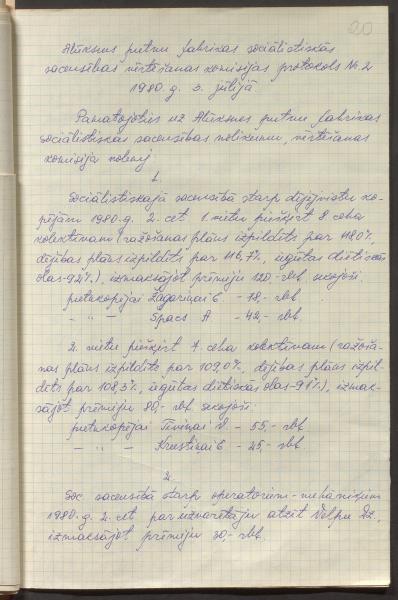 20
Alūksnes putnu fabrikas sociālistiskās
sacensības vērtēšanas komisijas protokols Nr.2
1980.g. 3. jūlijā
Pamatojoties uz Alūksnes putnu fabrikas
sociālistiskās sacensības nolikumu, vērtēšanas
komisija nolemj
1.
Sociālistiskajā sacensībā starp dējējvistu ko-
pējām 1980.g. 2. cet. 1. vietu piešķirt 8 ceha
kolektīvam (ražošanas plāns izpildīts par 118,0%,
dējības plāns izpildīts par 116,7%, iegūtas diētiskās
olas-92%), izmaksājot prēmiju 120-rbl sekojoši
putnkopējai Zagariņai B. - 78,- rbl
- " - Spacs A - 42,- rbl
2. vietu piešķirt 7 ceha kolektīvam (ražoša-
nas plāns izpildīts par 109,0%, dējības plāns izpil-
dīts par 108,5%, iegūtas diētiskās olas-91%), izmak-
sājot prēmiju 80,- rbl. sekojoši
putnkopējai Tiviņai V. - 55,- rbl
- " - Krustiņai B - 25,- rbl
2
Soc. sacensībā starp operatoriem-mehāniķiem
1980.g. 2. cet par uzvarētāju atzīt Velpu Dz.,
izmaksājot prēmiju 30,- rbl.